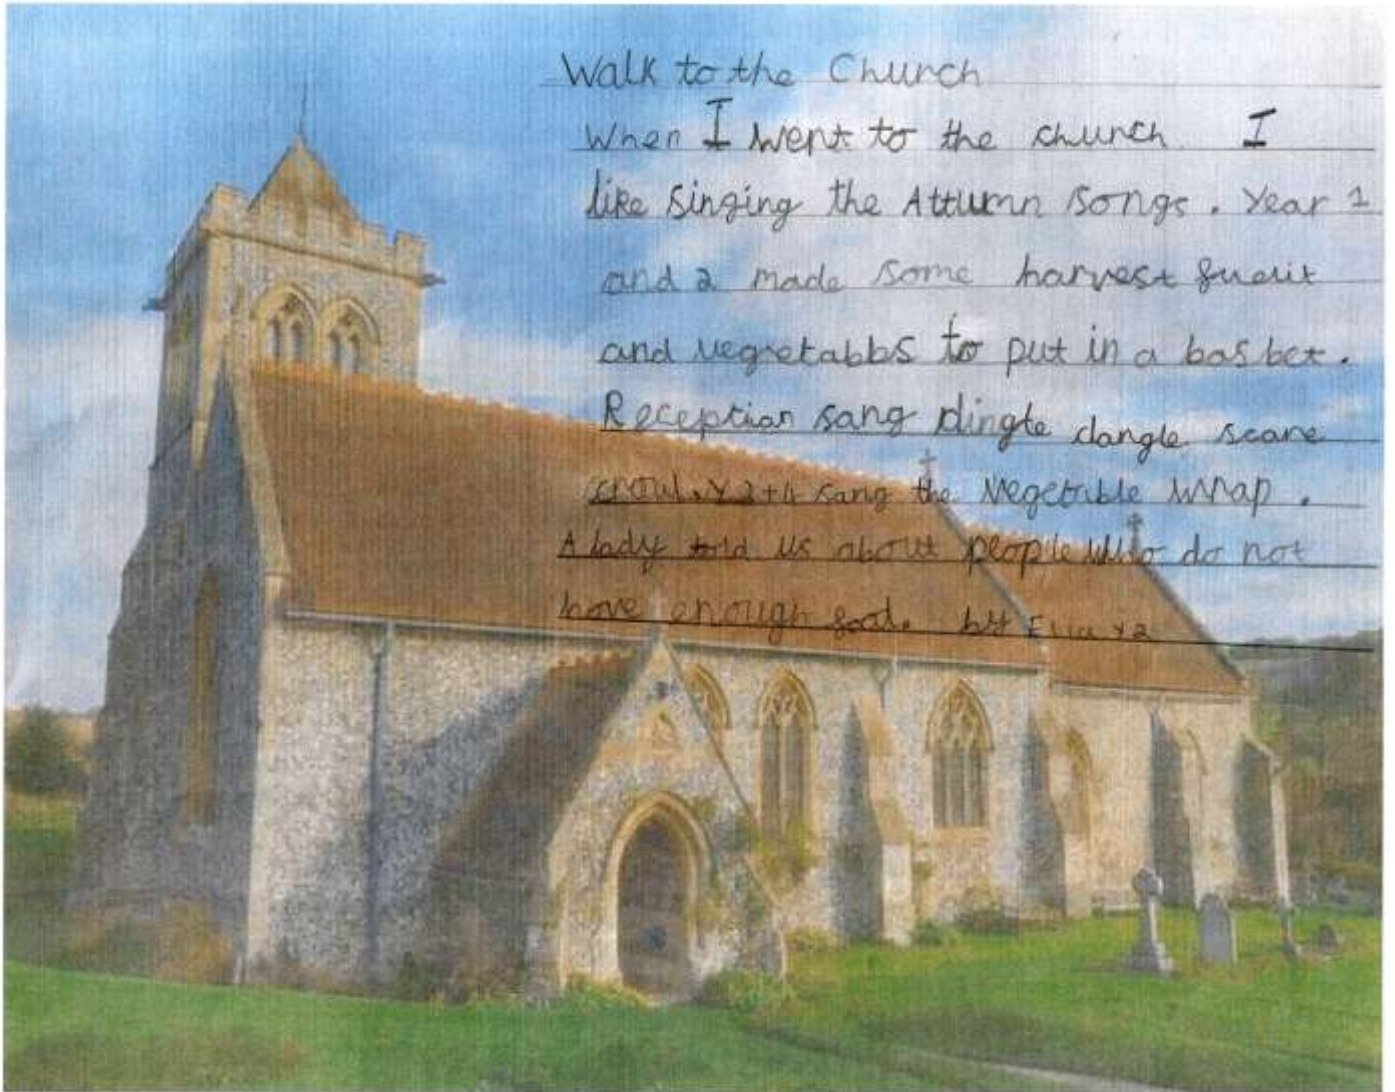 Walk to the Church
When I went to the church I
like singing the Attumn songs. Year 1
and 2 made some harvest frueit
and vegretabbs to put in a basbet.
Reception sang dingte dangle scare
crow. Y3+4 sang the vegetable wrap.
A lady told us about people who do not
have enough food. by Ella Y2